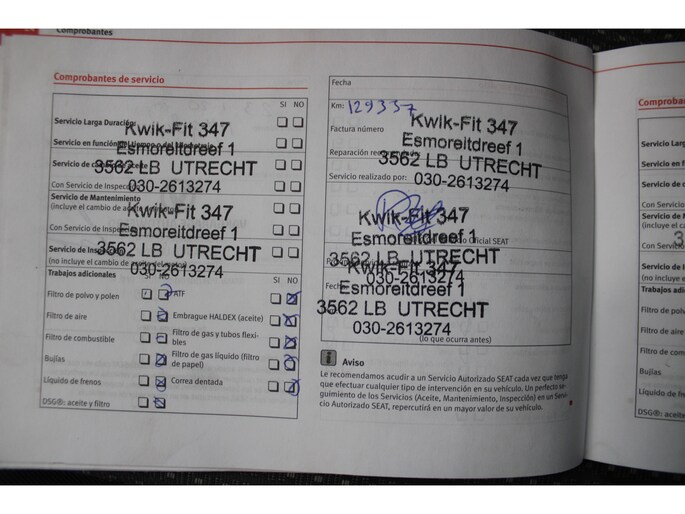 Comprobantes
Comprobantes de servicio
SI NO
Servicio Larga Duración:
Kwik-Fit 347
Servicio en función
Esmoreitdreef 1
Servicio de
3562 LB UTRECHT
Con Servicio de Inspec
030-2613274
Servicio de Mantenimiento
(incluye el cambio de
Kwik-Fit 347
Con Servicio de Inspec
Esmoreitdreef 1
Servicio de
3562 LB UTRECHT
(no incluye el cambio de
030-2613274
Trabajos adicionales
SI NO
SI NO
Filtro de polvo y polen
ATF
Filtro de aire
Embrague HALDEX (aceite)
Filtro de combustible
Filtro de gas y tubos flexi-
bles
Bujías
Filtro de gas líquido (filtro
de papel)
Líquido de frenos
Correa dentada
DSG®: aceite y filtro
Fecha
Km: 129337
Kwik-Fit 347
Factura número
Esmoreitdreef 1
Reparación
3562 LB UTRECHT
Servicio realizado por:
030-2613274
Kwik-Fit 347
Esmoreitdreef 1
Oficial SEAT
3562 LB UTRECHT
Kwik-Fit 347
030-2613274
Fecha
Esmoreitdreef 1
3562 LB UTRECHT
030-2613274
(lo que ocurra antes)
i Aviso
Le recomendamos acudir a un Servicio Autorizado SEAT cada vez que tenga
que efectuar cualquier tipo de intervención en su vehículo. Un perfecto se-
guimiento de los Servicios (Aceite, Mantenimiento, Inspección) en un Servi-
cio Autorizado SEAT, repercutirá en un mayor valor de su vehículo.
Comproban
Servicio Larg
Servicio en f
Servicio de
Con Servicio
Servicio de M
(incluye el
Con Servic
Servicio de I
(no incluye
Trabajos adi
Filtro de polv
Filtro de aire
Filtro de com
Bujías
Líquido de fre
DSG®: aceite